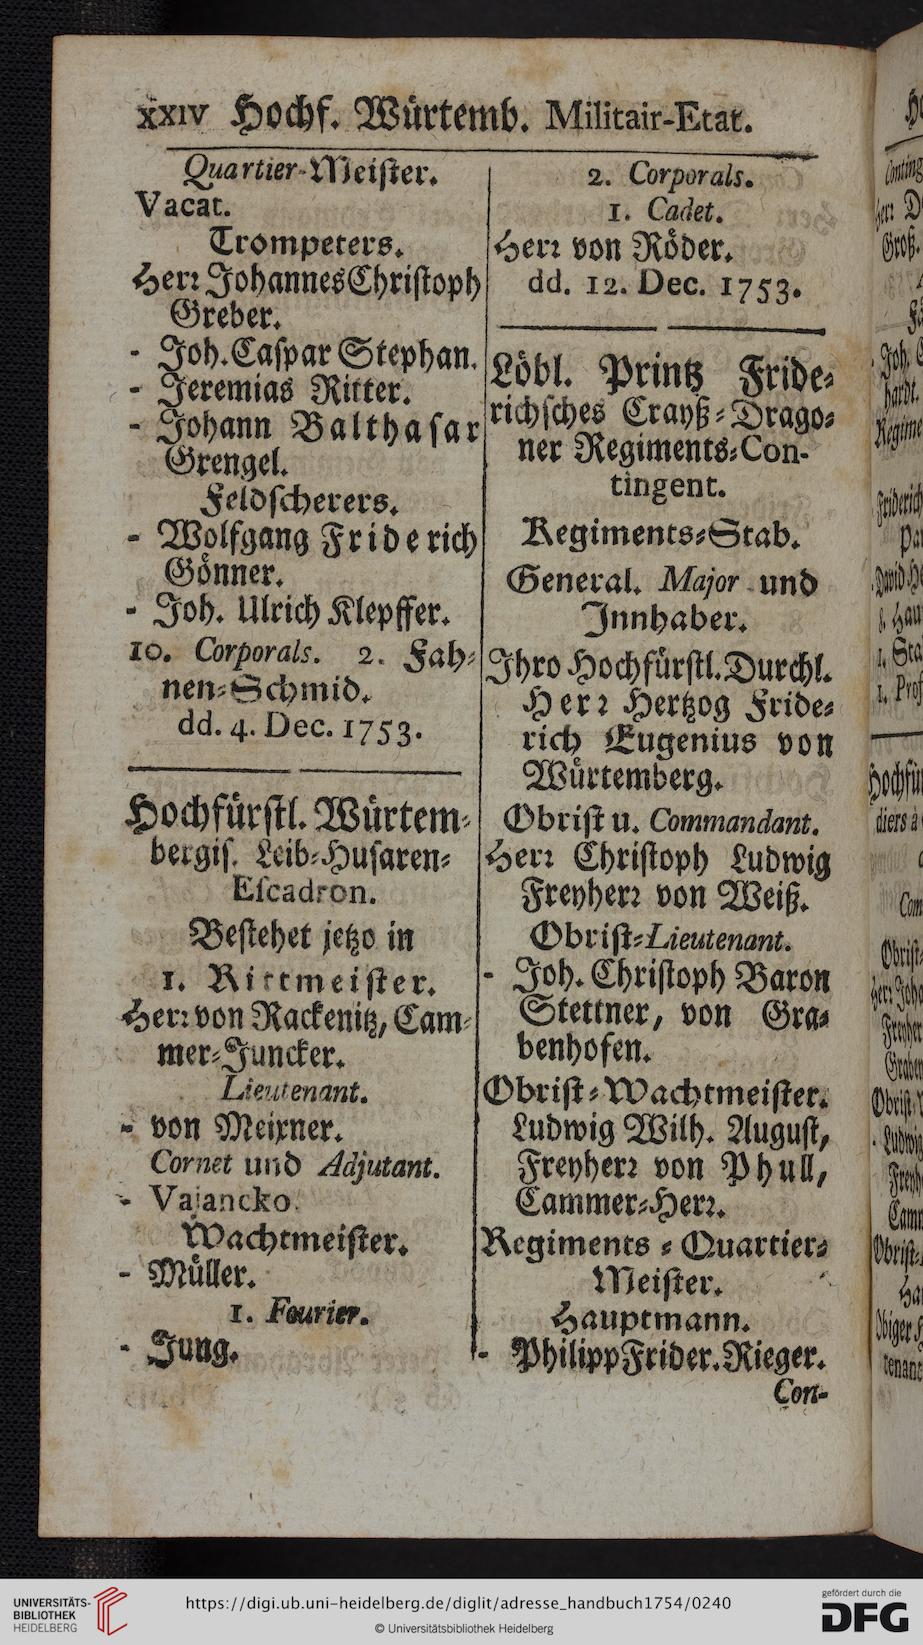 xxiv Hochf. Würtemb. Militair-Etat.
Quartier-Meiſter.
Vacat.
Trompeters.
Herr Johannes Chriſtoph
Greber.
- Joh. Caſpar Stephan.
- Jeremias Ritter.
- Johann Balthaſar
Grengel.
Feldſcherers.
- Wolfgang Friderich
Gönner.
- Joh. Ulrich Klepffer.
10. Corporals. 2. Fah-
nen-Schmid.
dd. 4. Dec. 1753.
Hochfürſtl. Würtem-
bergiſ. Leib-Huſaren-
Eſcadron.
Beſtehet jetzo in
1. Rittmeiſter.
Herr von Rackenitz, Cam-
mer-Juncker.
Lieutenant.
- von Meixner.
Cornet und Adjutant.
- Vajancko.
Wachtmeiſter.
- Müller.
1. Fourier.
- Jung.
2. Corporals.
1. Cadet.
Herr von Röder.
dd. 12. Dec. 1753.
Löbl. Printz Fride-
richſches Crayß-Drago-
ner Regiments-Con-
tingent.
Regiments-Stab.
General. Major und
Innhaber.
Ihro Hochfürſtl. Durchl.
Herr Hertzog Fride-
rich Eugenius von
Würtemberg.
Obriſt u. Commandant.
Herr Chriſtoph Ludwig
Freyherr von Weiß.
Obriſt-Lieutenant.
- Joh. Chriſtoph Baron
Stettner, von Gra-
benhofen.
Obriſt-Wachtmeiſter.
Ludwig Wilh. Auguſt,
Freyherr von Phull,
Cammer-Herr.
Regiments-Quartier-
Meiſter.
Hauptmann.
- Philipp Frider. Rieger.
Con-
UNIVERSITÄTS-
BIBLIOTHEK
HEIDELBERG
https://digi.ub.uni-heidelberg.de/diglit/adresse_handbuch1754/0240
© Universitätsbibliothek Heidelberg
gefördert durch die
DFG